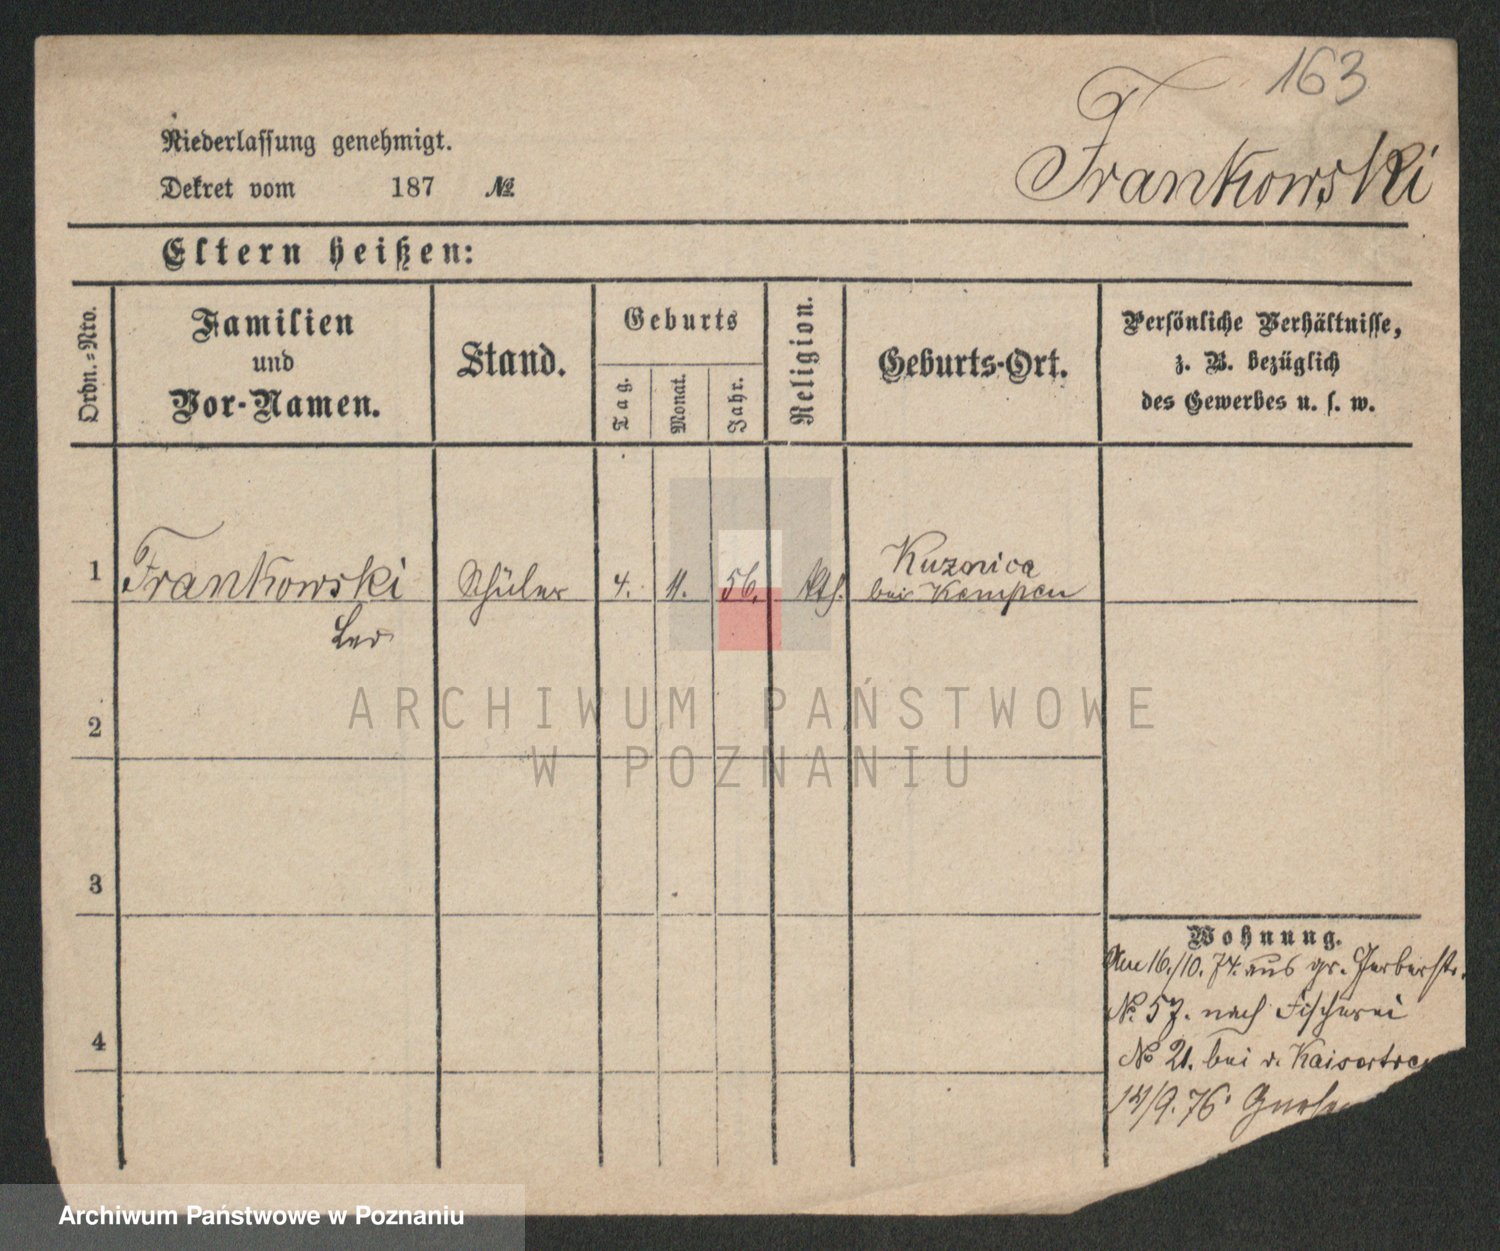 163
Frankowski
Niederlassung genehmigt.
Dekret vom 187 №
Eltern heißen:
Ordn.-Nro.
Familien
und
Vor-Namen.
Stand.
Geburts
Tag.
Monat.
Jahr.
Religion.
Geburts-Ort.
Persönliche Verhältnisse,
z. B. bezüglich
des Gewerbes u. s. w.
1 Frankowski Schüler 4. 11. 56. kth. Kuznica
bei Kempen
Leo
2
3
4
Wohnung.
Am 16./10. 74. aus gr. Gerberstr.
No. 57. nach Fischerei
No 21. bei v.
/9. 76.
ARCHIWUM PAŃSTWOWE
W POZNANIU
Archiwum Państwowe w Poznaniu